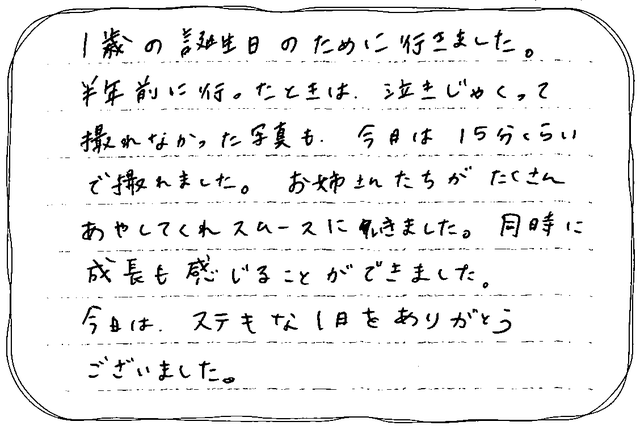 1歳の誕生日のために行きました。
半年前に行ったときは、泣きじゃくって
撮れなかった写真も、今日は15分くらい
で撮れました。お姉さんたちがたくさん
あやしてくれスムースに行きました。同時に
成長も感じることができました。
今日は、ステキな1日をありがとう
ございました。